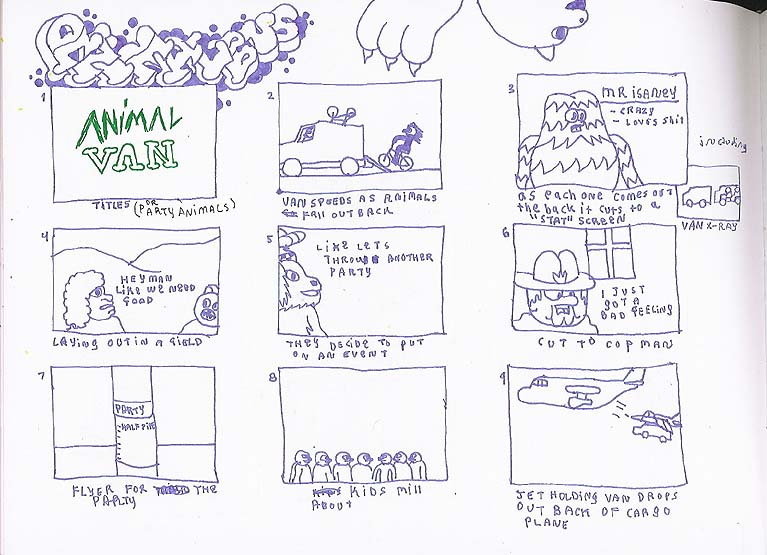 ANIMALS
1
ANIMAL
VAN
TITLES (OR PARTY ANIMALS)
2
VAN SPEEDS AS ANIMALS
FALL OUT BACK
3
MR ISANEY
- CRAZY
- LOVES SHIT
AS EACH ONE COMES OFF
THE BACK IT CUTS TO A
"STAT" SCREEN
including
VAN X-RAY
4
HEY MAN
LIKE WE NEED
FOOD
LAYING OUT IN A FIELD
5
LIKE LETS
THROW ANOTHER
PARTY
THEY DECIDE TO PUT
ON AN EVENT
6
I JUST
GOT A
BAD FEELING
CUT TO COP MAN
7
PARTY
HALF PIPE
FLYER FOR THE
PARTY
8
KIDS MILL
ABOUT
9
JET HOLDING VAN DROPS
OUT BACK OF CARGO
PLANE